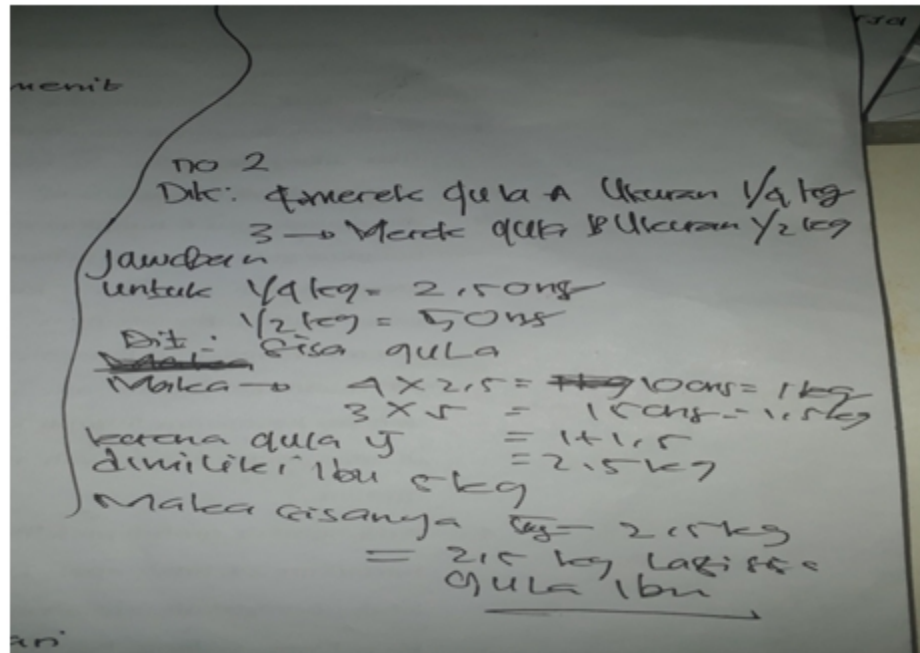 menit
no 2
Dik: 4 merek gula A Ukuran 1/4 kg
3 → Merek gula B Ukuran 1/2 kg
Jawaban
untuk 1/4 kg = 2,5 ons
1/2 kg = 5 ons
Dit : Sisa gula
Maka → 4 x 2,5 = 10 ons = 1 kg
3 x 5 = 15 ons = 1,5 kg
karena gula yg = 1+1,5
dimiliki Ibu 5 kg = 2,5 kg
Maka sisanya 5kg - 2,5 kg
= 2,5 kg Lagi
gula Ibu
ari